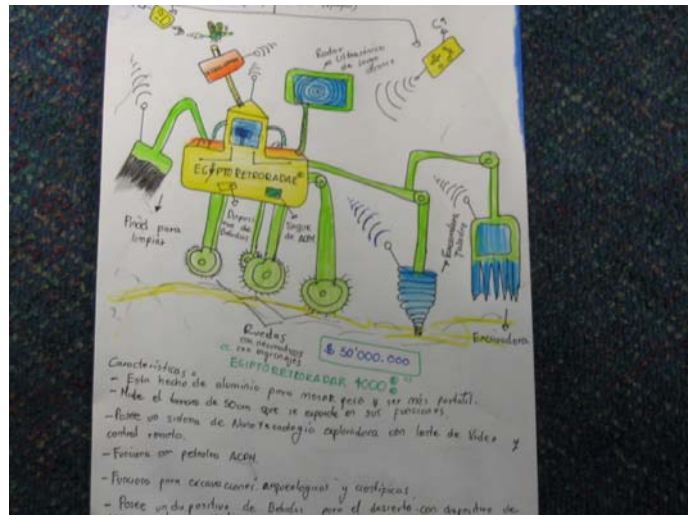 C4
Radar
Ultrasónico
de largo
alcance
EGIPTORETRORADAR®
Pincel para
limpiar
Dispen
de
Bebidas
de ACPM
Excavadora
Taladro
Excavadora
Ruedas
con neumáticos
con engranajes
$ 50'000.000
EGIPTORETRORADAR 4000®
Características
- Esta hecho de aluminio para menor peso y ser más portátil.
- Mide el tamaño de 50cm que se expande en sus funciones.
- Posee un sistema de Nanotecnología exploradora con lente de Video y
control remoto.
- Funciona con petroleo ACPM
- Funciona para excavaciones arqueologicas y cientificas
- Posee un dispositivo de Bebidas para el desierto con dispositivo de